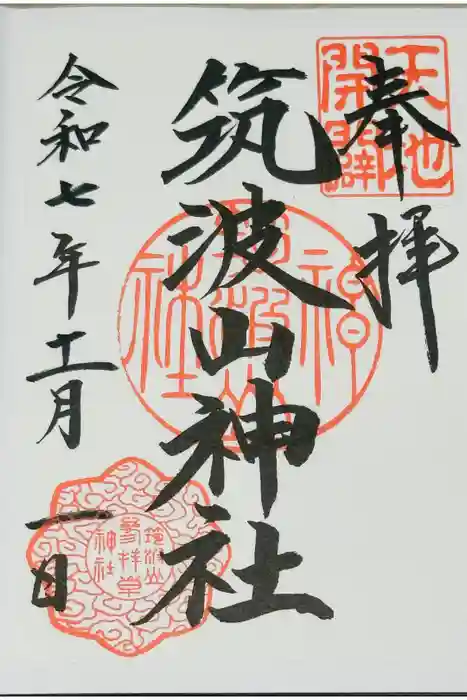 奉拝
天地
開闢
筑波山神社
筑波山
神社
令和七年十一月一日
筑波山
参拝章
神社